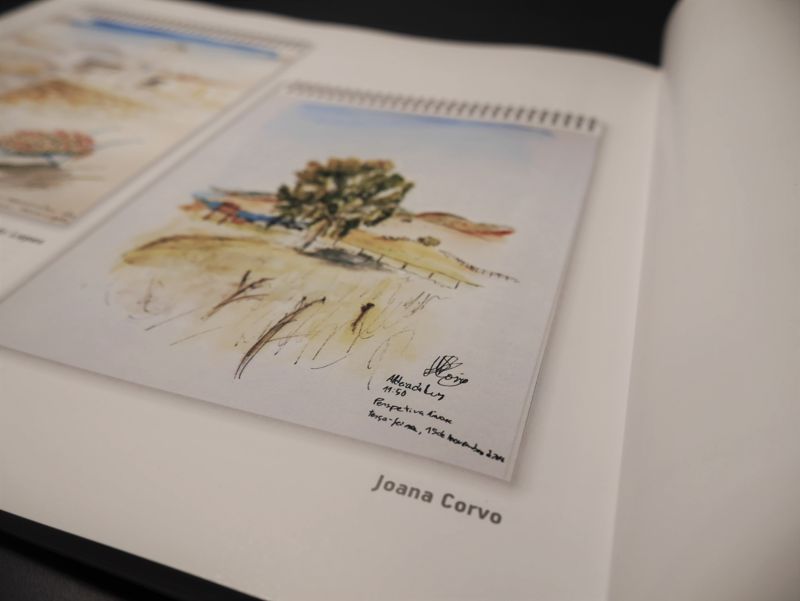 Lopes
Corvo
Aldeia da Luz
11:50
Perspetiva
terça-feira, 15 de novembro
Joana Corvo